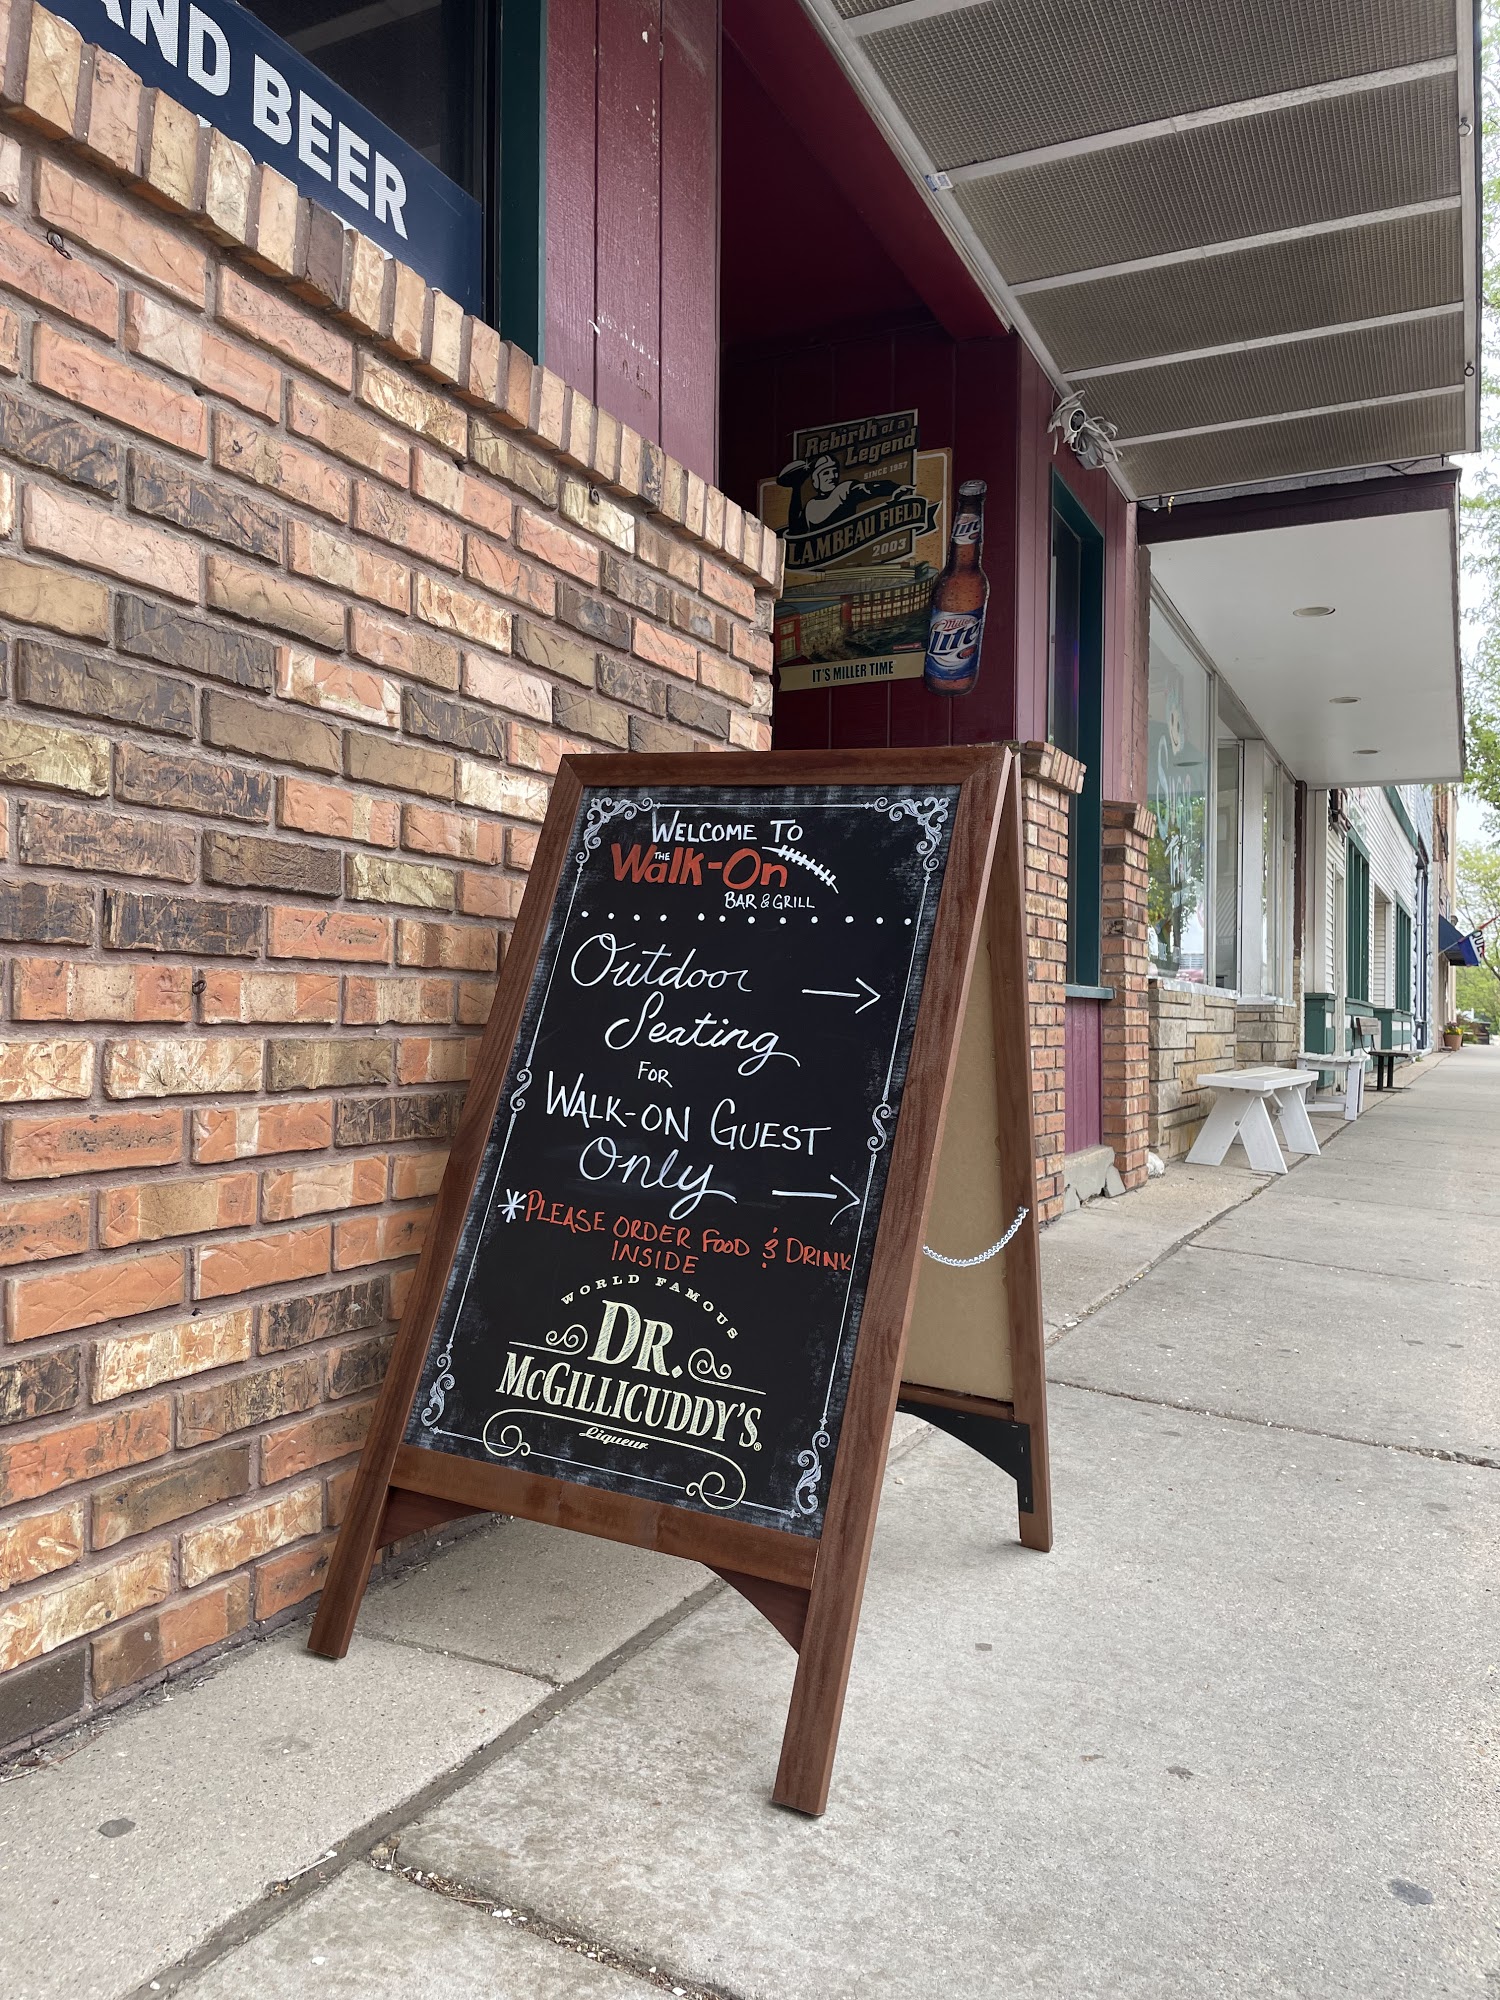 AND BEER
Rebirth of a
Legend
SINCE 1957
LAMBEAU FIELD
2003
IT'S MILLER TIME
Lite
Miller
Lite
WELCOME TO
THE
Walk-On
BAR & GRILL
Outdoor
Seating
FOR
WALK-ON GUEST
Only
*PLEASE ORDER FOOD & DRINK
INSIDE
WORLD FAMOUS
DR.
McGILLICUDDY'S®
Liqueur